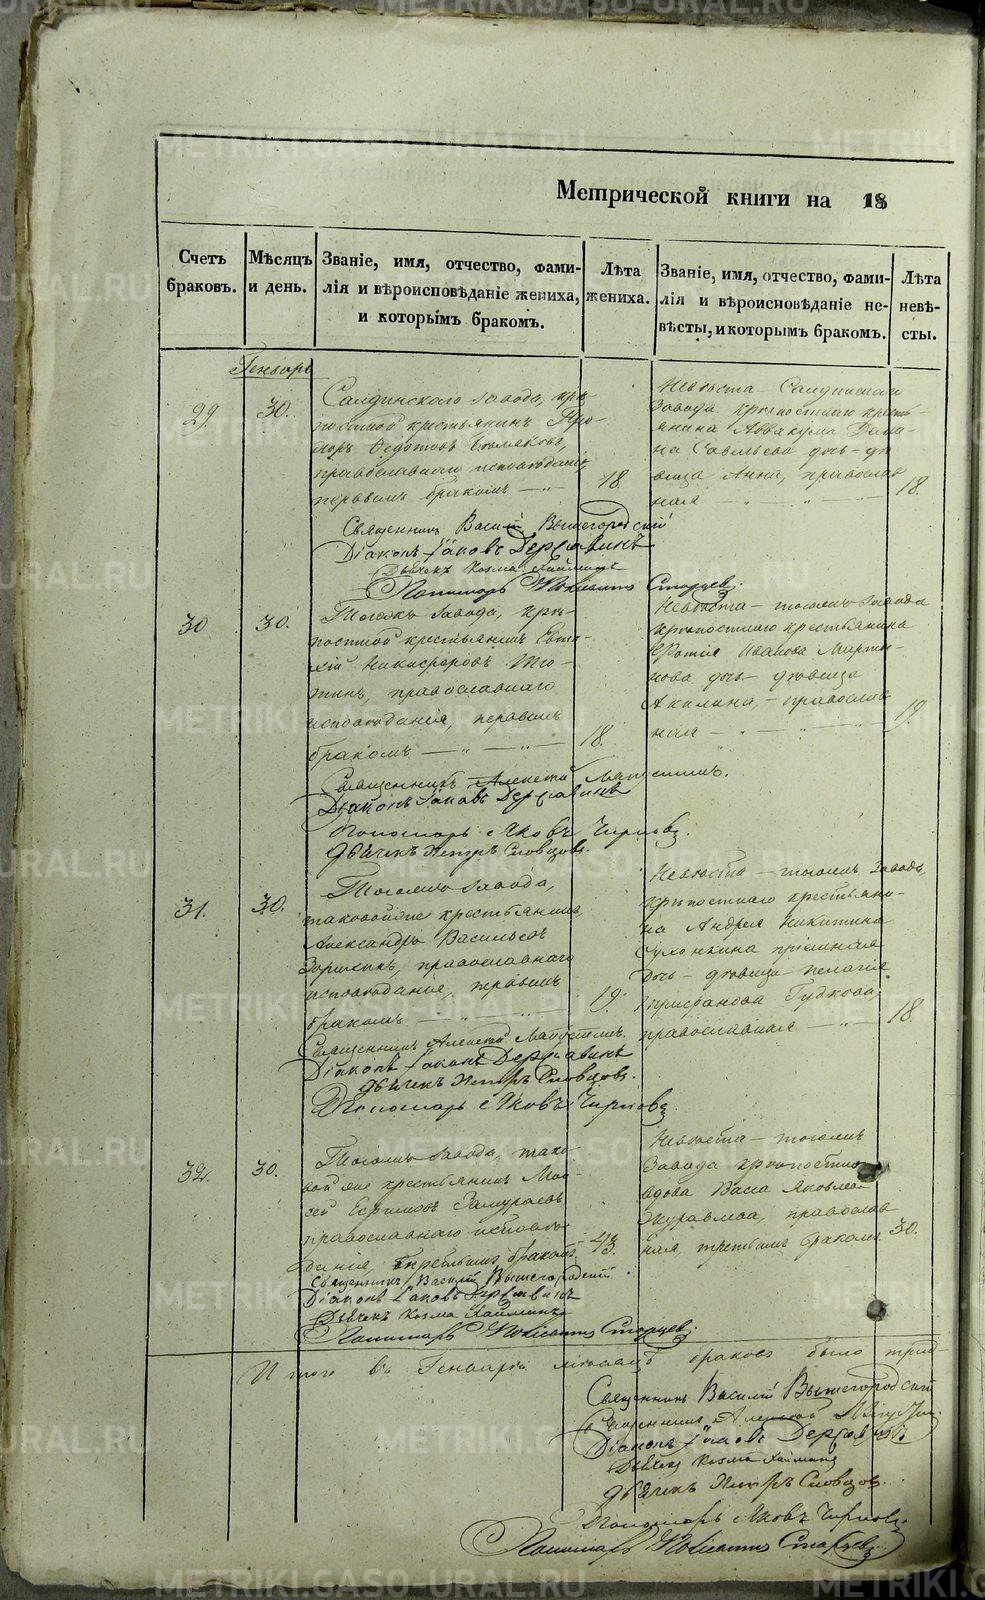 Метрической книги на 18
Счетъ браковъ.
Мѣсяцъ и день.
Званіе, имя, отчество, фами-
лія и вѣроисповѣданіе жениха,
и которымъ бракомъ.
Лѣта
жениха.
Званіе, имя, отчество, фами-
лія и вѣроисповѣданіе не-
вѣсты, и которымъ бракомъ.
Лѣта
невѣ-
сты.
Генварь
29.
30.
Салдинскаго завода, крѣ-
постной крестьянинъ
Федотовъ
православнаго исповѣданія,
первымъ бракомъ
18
Невѣста Салдинскаго
завода крѣпостнаго кресть-
янина Аввакума
на Савельева дочь дѣ-
вица Анна, православ
ная
18.
Священникъ Василій Вышегородскій
Діаконъ Іаковъ Державинъ
Дьячекъ Козма
Пономарь Старцевъ.
30
30.
Тогожъ завода, крѣ-
постной крестьянинъ Евти-
хій Никифоровъ
православнаго
исповѣданія, первымъ
бракомъ
18.
Невѣста тогожъ завода
крѣпостнаго крестьянина
Фотія Иванова Марты-
нова дочь дѣвица
Акилина, православ
ная
19.
Священникъ Алексей
Діаконъ Іаковъ Державинъ
Пономарь Яковъ Чирковъ.
Дьячекъ Петръ Словцовъ.
31.
30.
Тогожъ завода,
таковойже крестьянинъ
Александръ Васильевъ
православнаго
исповѣданія, первымъ
бракомъ
19.
Невѣста тогожъ завода,
крѣпостнаго крестьяни-
на Андрея Никитина
пріемная
дочь дѣвица Пелагія
Гудкова,
православная
18.
Священникъ Алексей
Діаконъ Іаковъ Державинъ
Дьячекъ Петръ Словцовъ.
Пономарь Яковъ Чирковъ.
32.
30.
Тогожъ завода, тако-
вой же крестьянинъ Мои-
сей Ефимовъ Замураевъ
православнаго исповѣ-
данія, третьимъ бракомъ
43.
Невѣста тогожъ
завода крѣпостная
вдова Васса Яковлева
Журавлева, православ
ная, третьимъ бракомъ
30.
Священникъ Василій Вышегородскій
Діаконъ Іаковъ Державинъ
Дьячекъ Козма
Пономарь Старцевъ.
Итого въ Генварѣ мѣсяцѣ браковъ было трид-
Священникъ Василій Вышегородскій
Священникъ Алексей
Діаконъ Іаковъ Державинъ
Дьячекъ Козма
Дьячекъ Петръ Словцовъ.
Пономарь Яковъ Чирковъ.
Пономарь Старцевъ
METRIKI.GASO-URAL.RU